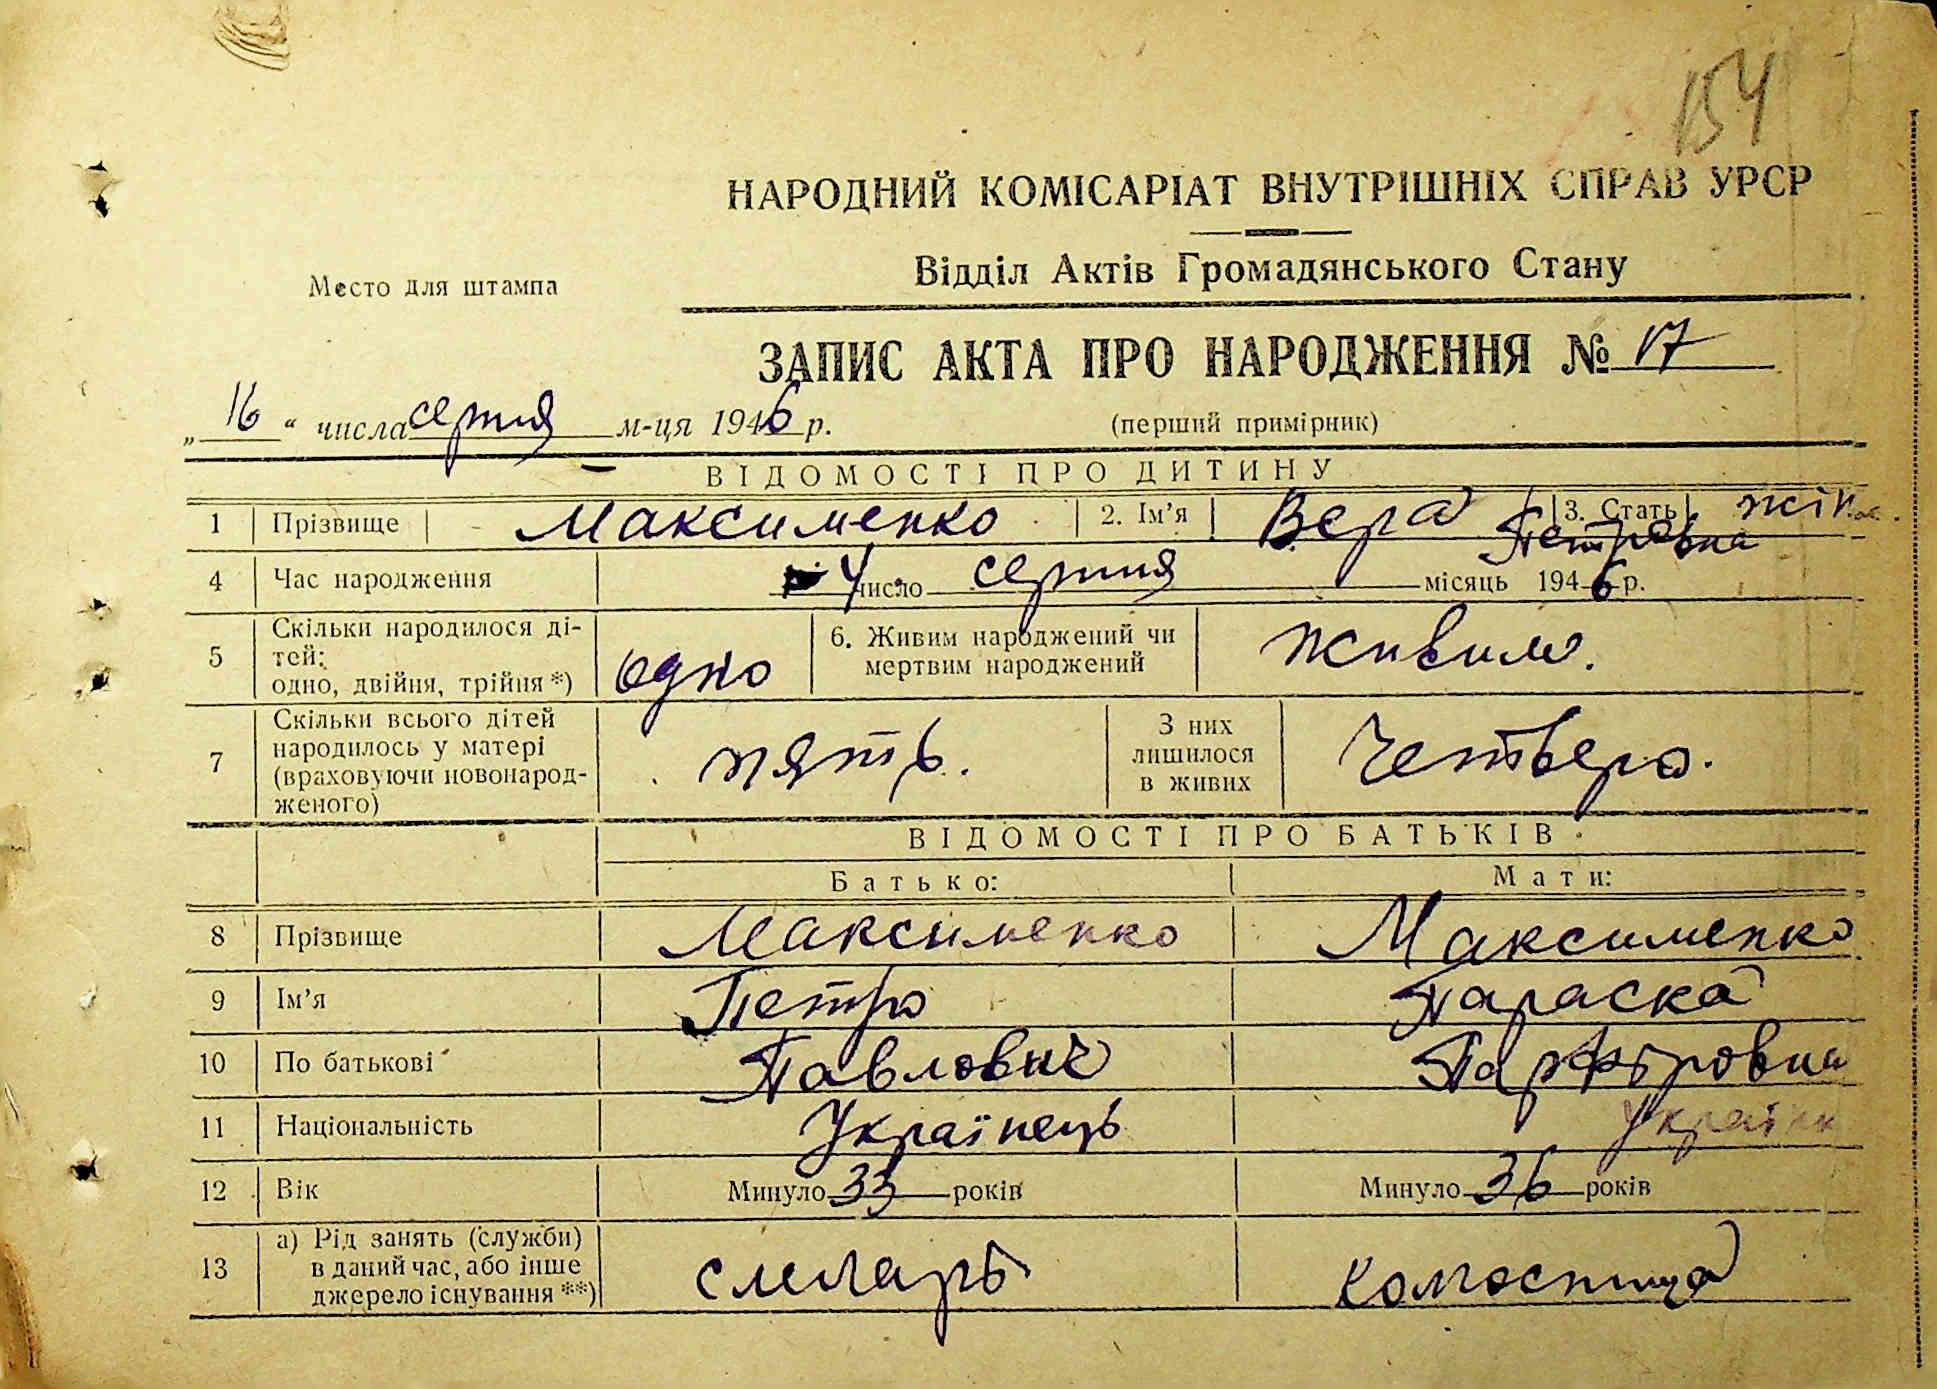 154
НАРОДНИЙ КОМІСАРІАТ ВНУТРІШНІХ СПРАВ УРСР
Відділ Актів Громадянського Стану
Место для штампа
ЗАПИС АКТА ПРО НАРОДЖЕННЯ № 17
„ 16 “ числа серпня м-ця 1946 р.
(перший примірник)
ВІДОМОСТІ ПРО ДИТИНУ
1 Прізвище Максименко 2. Ім’я Вера Петровна 3. Стать жін.
4 Час народження 4 число серпня місяць 1946 р.
5 Скільки народилося ді-
тей:
одно, двійня, трійня *) одно
6. Живим народжений чи
мертвим народжений живим.
7 Скільки всього дітей
народилось у матері
(враховуючи новонарод-
женого) пять.
З них
лишилося
в живих четверо.
ВІДОМОСТІ ПРО БАТЬКІВ
Батько: Мати:
8 Прізвище Максименко Максименко
9 Ім’я Петро Параска
10 По батькові Павлович
11 Національність Українець Українк
12 Вік Минуло 33 років Минуло 36 років
13 а) Рід занять (служби)
в даний час, або інше
джерело існування **)